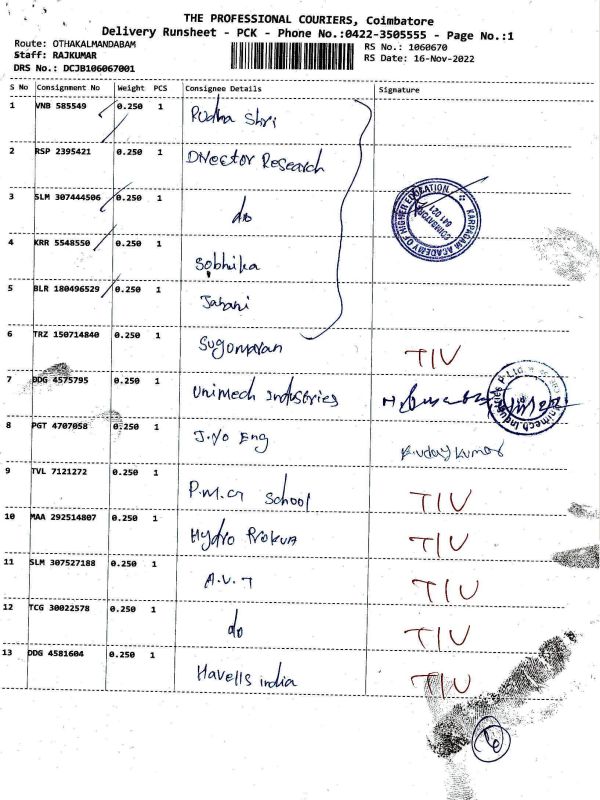 THE PROFESSIONAL COURIERS, Coimbatore
Delivery Runsheet - PCK - Phone No.:0422-3505555 - Page No.:1
Route: OTHAKALMANDABAM
RS No.: 1060670
Staff: RAJKUMAR
RS Date: 16-Nov-2022
DRS No.: DCJB106067001
S No Consignment No Weight PCS Consignee Details Signature
1 VNB 585549 0.250 1 Rudha Shri
2 RSP 2395421 0.250 1 Director Research
3 SLM 307444506 0.250 1 do
KARPAGAM ACADEMY OF HIGHER EDUCATION
COIMBATORE
641 021
4 KRR 5548550 0.250 1 Sobhika
5 BLR 180496529 0.250 1 Janani
6 TRZ 150714840 0.250 1 Sugomaran TIV
7 DDG 4575795 0.250 1 Unimech Industries
Unimech Industries P. Ltd
8 PGT 4707058 0.250 1 J.No Eng R.uday kumar
9 TVL 7121272 0.250 1 P.M.G School TIV
10 MAA 292514807 0.250 1 Hydro Prokuva TIV
11 SLM 307527188 0.250 1 A.V.T TIV
12 TCG 30022578 0.250 1 do TIV
13 DDG 4581604 0.250 1 Havells india TIV